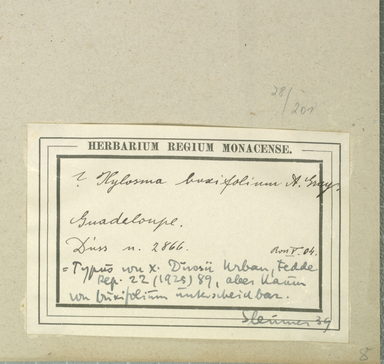 28/201
HERBARIUM REGIUM MONACENSE.
? Xylosma buxifolium A. Gray.
Guadeloupe.
Duss n. 2866.
V. 04.
= Typus von X. Dussii Urban, Fedde
Rep. 22 (1925) 89, aber kaum
von buxifolium unterscheidbar.
Sleumer 39